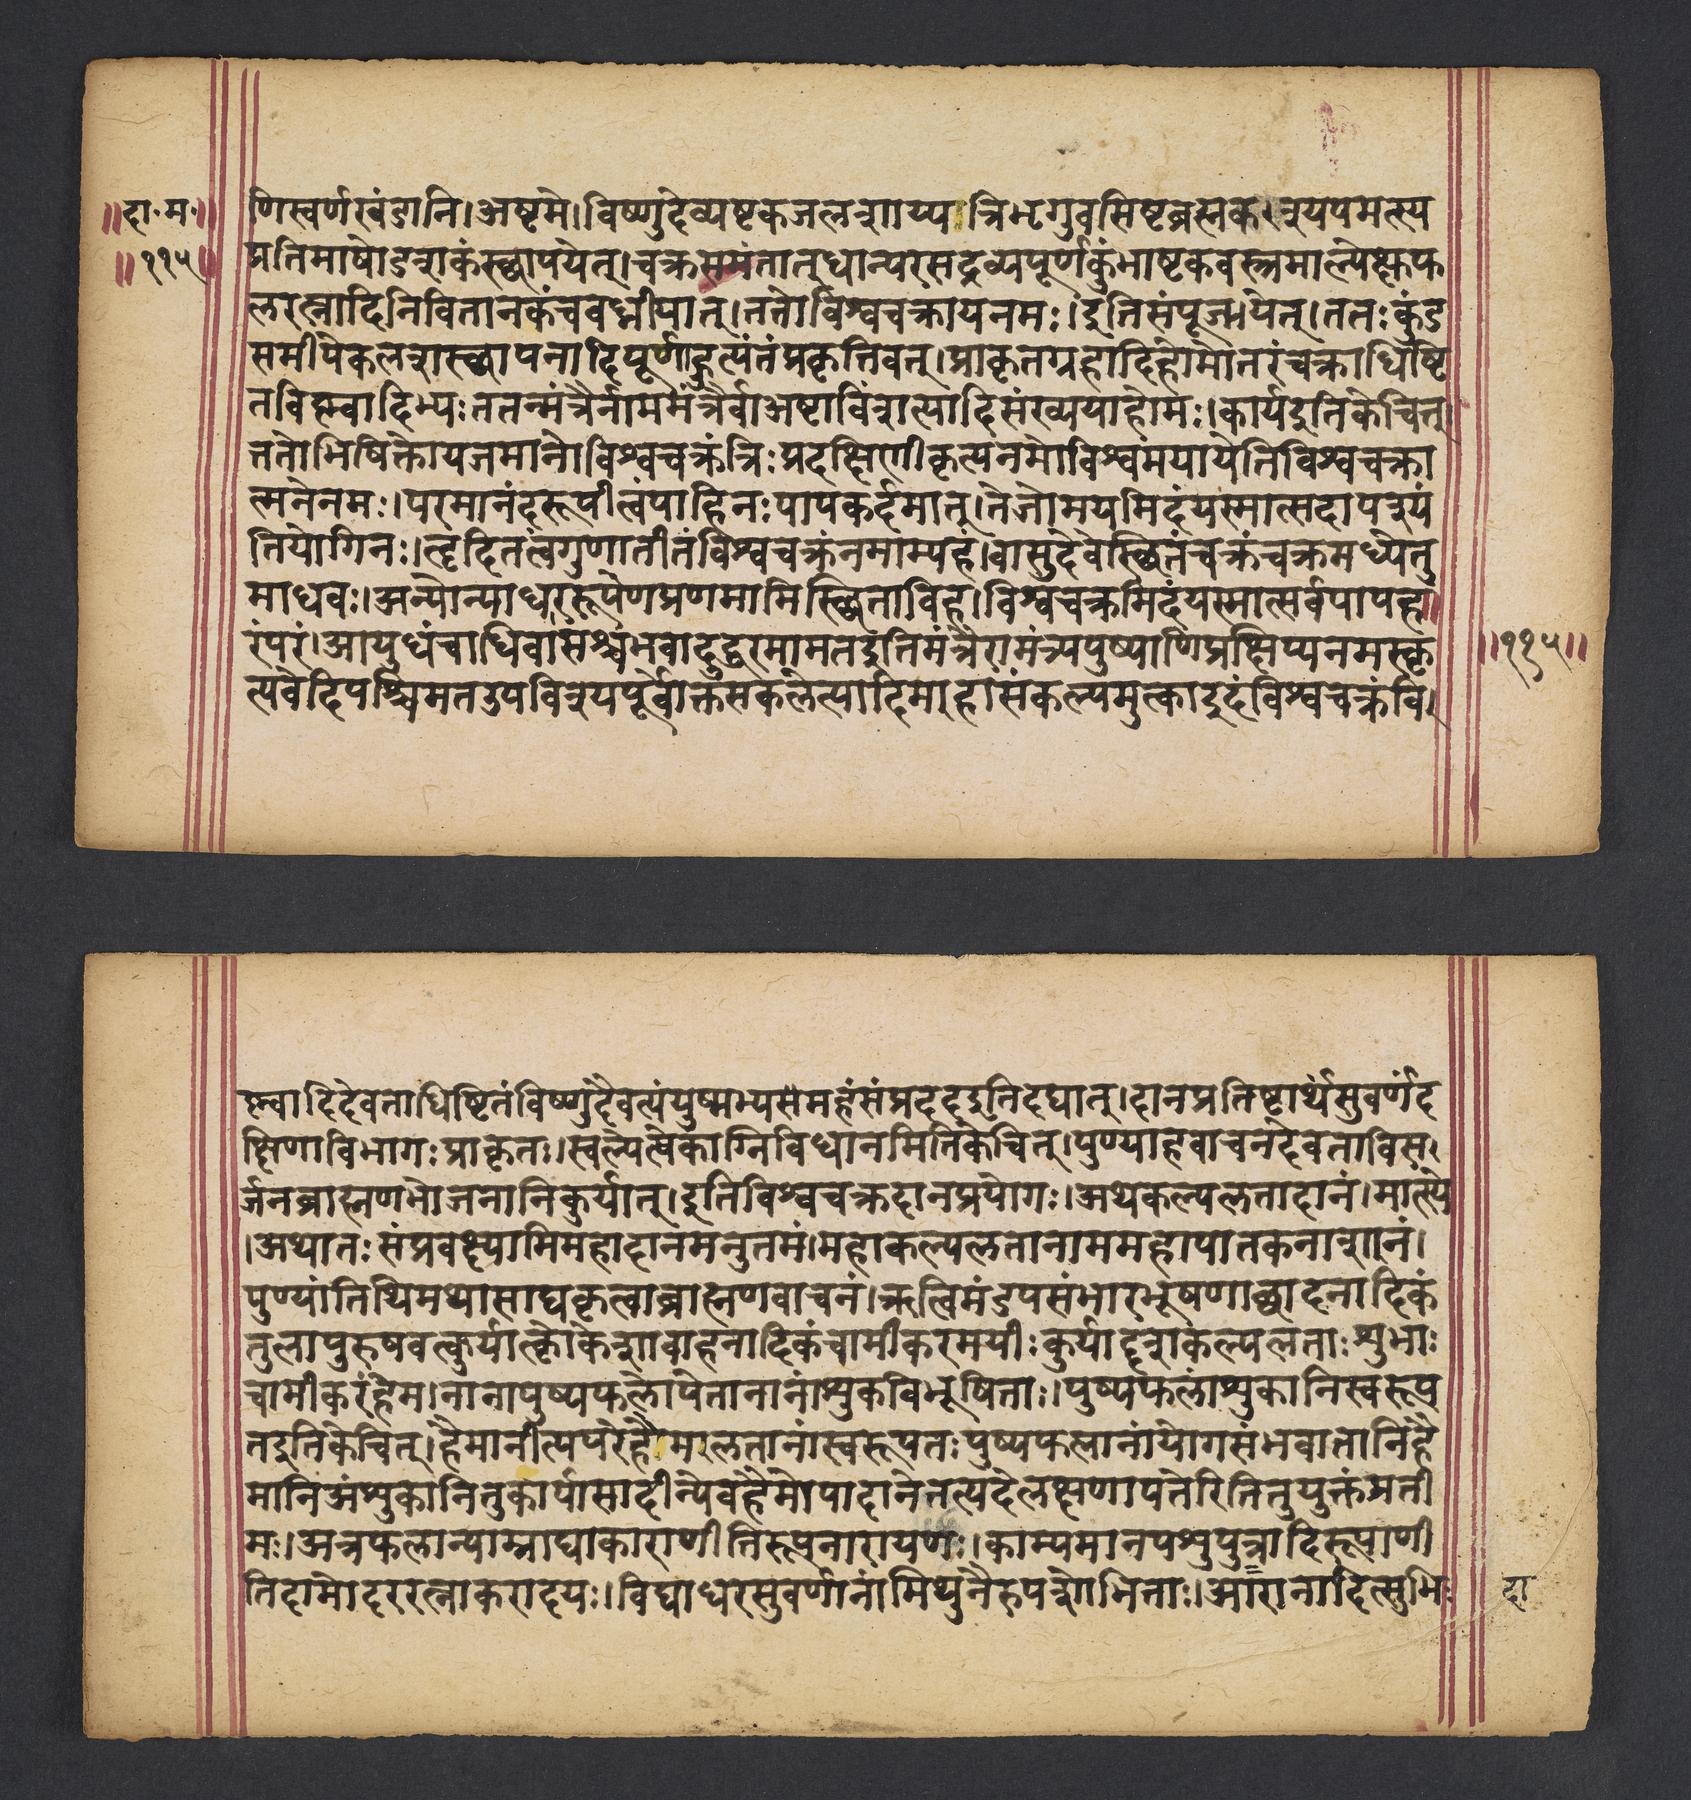 ॥दा॰म॰॥
॥११५॥
णिस्वर्णखंडानि।अष्टमे।विष्णुदेव्यष्टकजलशाय्य त्रिभृगुवसिष्टब्रह्मक श्यपमत्स्य
प्रतिमाषोडशकंस्छापयेत्।चक्रसमंतात्धान्यरसद्रव्यपूर्णकुंभाष्टकवस्त्रमाल्येक्षुफ
लरत्नादिनिवितानकंचबध्नीयात्।ततोविश्वचक्रायनमः।इतिसंपूजयेत्।ततःकुंड
समीपेकलशस्छापनादिपूर्णाहुत्यंतंप्रकृतिवत्।प्राकृतग्रहादिहोमोतरंचक्राधिष्टि
तविह्मवादिभ्यःततन्मंत्रैर्नाममंत्रैर्वाअष्टाविंशत्यादिसंख्ययाहोमः।कार्यइतिकेचित्
ततोभिषिक्तोयजमानोविश्वचक्रंत्रिःप्रदक्षिणीकृत्यनमोविश्वंमयायेतिविश्वचक्रा
त्मनेनमः।परमानंदरूपीत्वंपाहिनःपापकर्दमात्।तेजोमयमिदंयस्मात्सदापश्यं
तियोगिनः।हृदितत्वंगुणातीतंविश्वचक्रंनमाम्यहं।वासुदेवेस्छितंचक्रंचक्रमध्येतु
माधवः।अन्योन्याधररूपेणप्रणमामिस्छिताविह।विश्वचक्रमिदंयस्मात्सर्वपापह
रंपरं।आयुधंचाधिवासश्चभवादुद्धरमामतइतिमंत्रैरामंत्र्यपुष्पाणिप्रक्षिप्यनमस्कृ
॥११५॥
त्यवेदिपश्चिमतउपविश्यपूर्वोक्तसकलेत्यादिमाहासंकल्पमुत्काइदंविश्वचक्रंवि।
ह्मवादिदेवताधिष्टितंविष्णुदैवत्यंयुष्मभ्यसमहंसंप्रददइतिदद्यात्।दानप्रतिष्टार्थंसुवर्णंद
क्षिणाविभागःप्राकृतः।स्वल्पेत्वेकाग्निविधानमितिकेचित्।पुण्याहवाचनदेवताविस।
र्जनब्राह्मणभोजनानिकुर्यात्।इतिविश्वचक्रदानप्रयोगः।अथेकल्पलतादानं।मात्स्ये
।अथातःसंप्रवक्ष्यामिमहादानमनुतमं।महाकल्पलतानाममहापातकनाशनं।
पुण्यांतिथिमथासाद्यकृत्वाब्राह्मणवाचनं।ऋत्विमंडपसंभारभूषणाछादनादिकं
तुलापुरुषवत्कुर्यात्क्रोकेशावाहनादिकंचामीकरमयीःकुर्याद्दशकल्पलताःशुभाः
चामीकरंहेम।नानापुष्पफलोपेतानानांशुकविभूषिताः।पुष्पफलांशुकानिस्वरूप
तइतिकेचित्।हैमानीत्यपरेहै मलतानांस्वरूपतःपुष्पफलानांयोगसंभवात्तानिहै
मानिअंशुकानितुकार्पासादीन्येवहैमोपादानेतत्पदेलक्षणापतेरितितुयुक्तंप्रती
मः।अन्नफलान्याम्नाद्याकाराणीतिरूपनारायणः।काम्यमानपशुपुत्रादिरूपाणी
तिदामोदररत्नाकरादयः।विद्याधरसुवर्णानांमिथुनैरुपशोभिताः।आरानादित्सुभिः
दा